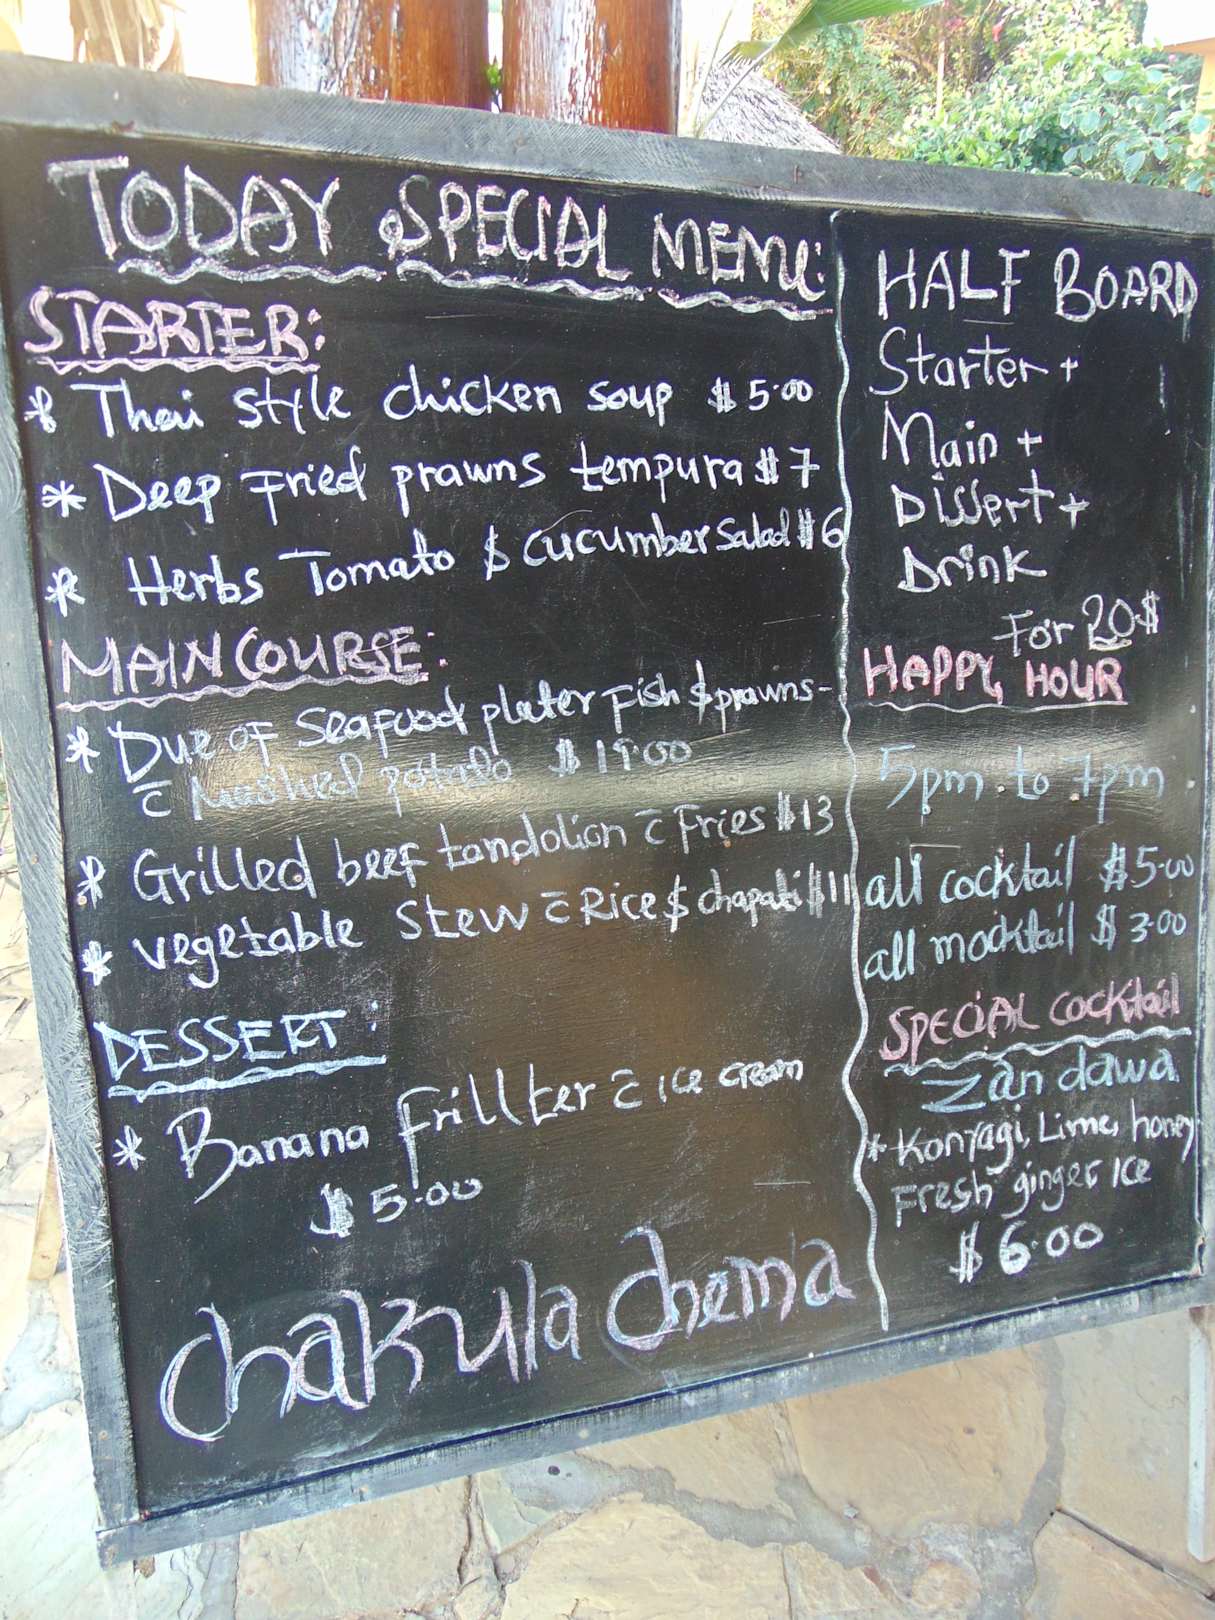 TODAY SPECIAL MENU:
STARTER:
* Thai style chicken soup $5.00
* Deep Fried prawns tempura $7
* Herbs Tomato $ cucumber salad $6
MAIN COURSE:
* Due of Seafood plater Fish $ prawns-
c̄ Mashed potato $19.00
* Grilled beef tandolion c̄ Fries $13
* vegetable Stew c̄ Rice $ chapati $11
DESSERT:
* Banana frillter c̄ ice cream
$5.00
chakula chema
HALF BOARD
Starter +
Main +
Dissert +
Drink
For 20$
HAPPY HOUR
5pm to 7pm
all cocktail $5.00
all mocktail $3.00
SPECIAL COCKtail
Zan dawa
* Konyagi, Lime, honey
Fresh ginger Ice
$6.00